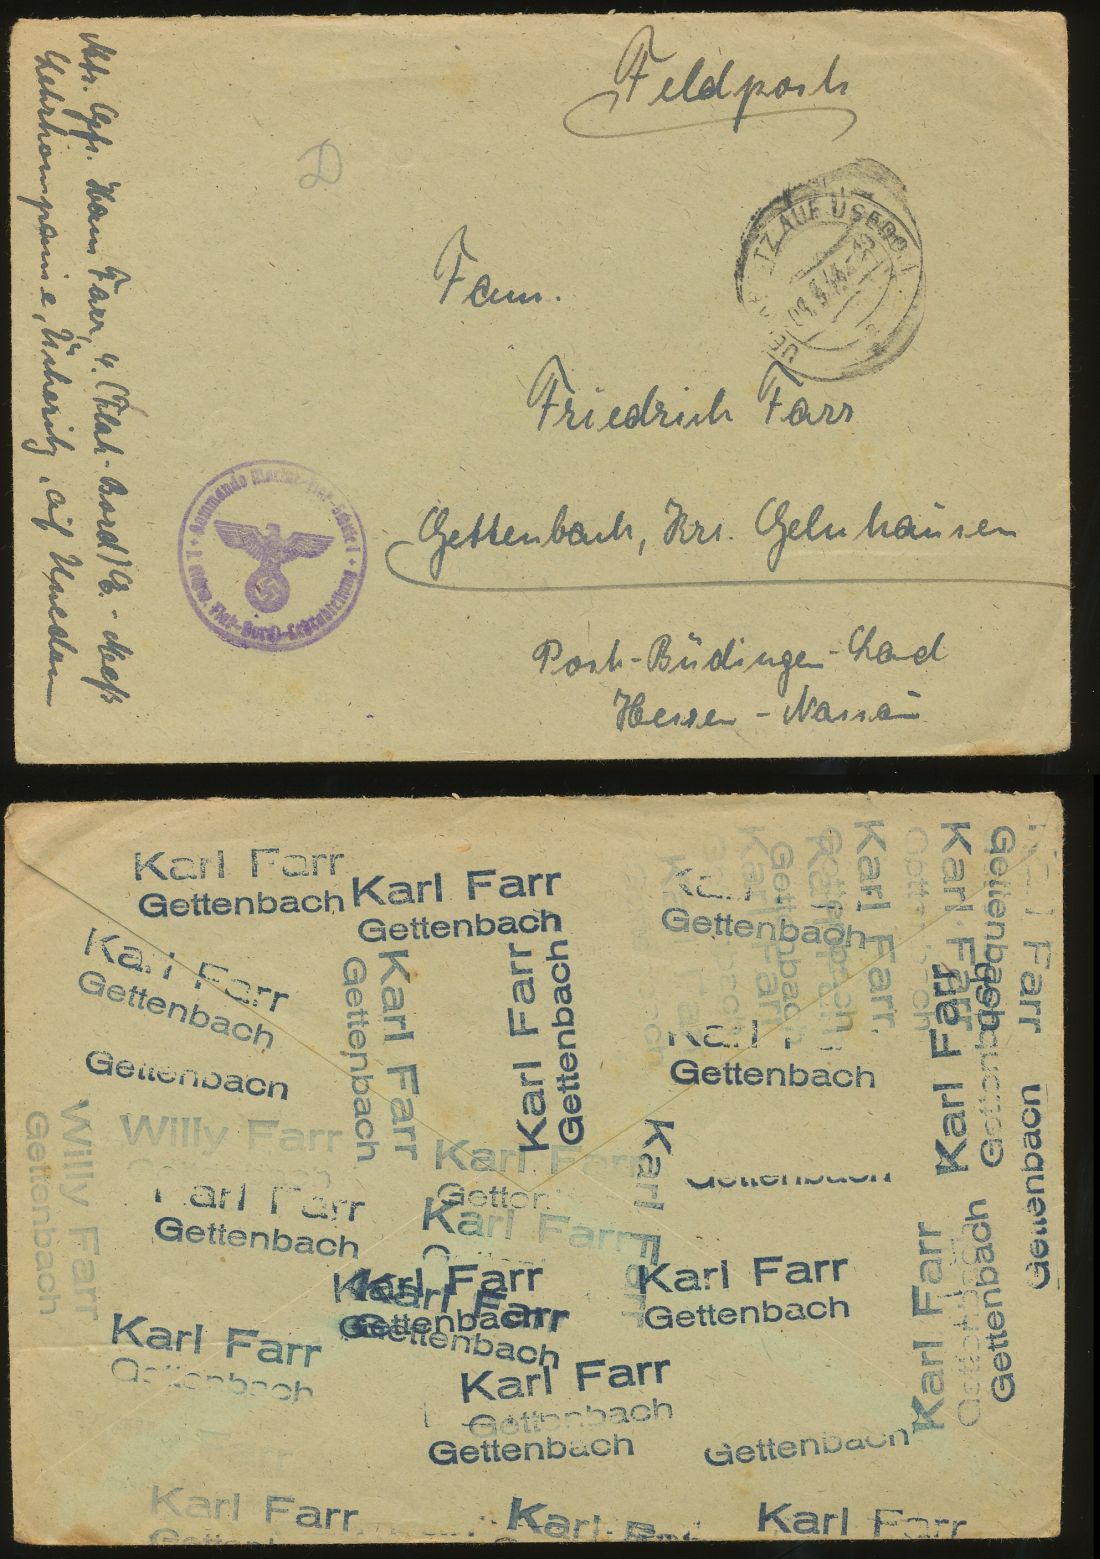 Feldpost
D
Mtr. Gfr. Hans Farr, 4. (Flak-Bord) E.-Meß
Lehrkompanie, Ückeritz auf Usedom
TZ AUF USEDO
09.3.44-12
Fam.
Friedrich Farr
Gettenbach, Krs. Gelnhausen
Post-Büdingen-Land
Hessen-Nassau
Kommando Marine-Flak-Schule I
Flak-Bord)-Lehrabteilung
Karl Farr
Gettenbach
Karl Farr
Gettenbach
Karl Farr
Gettenbach
Karl Farr
Gettenbach
Karl Farr
Gettenbach
Karl Farr
Gettenbach
Gettenbach
Karl
Gettenbach
Karl
Gettenbach
Karl Farr
Karl Farr
Gettenbach
Karl Farr
Gettenbach
Karl Farr
Gettenbach
Farr
Gettenbach
Willy Farr
Willy Farr
Gettenbach
Karl Farr
Gettenbach
Karl Farr
Gettenbach
Karl Farr
Karl Farr
Gettenbach
Karl Farr
Gettenbach
Karl Farr
Gettenbach
Karl Farr
Karl Farr
Gettenbach
Karl Farr
Gettenbach
Gettenbach
Karl Farr
Gettenbach
Gettenbach
Gettenbach
Karl Farr
Gettenbach
Karl
Karl Farr